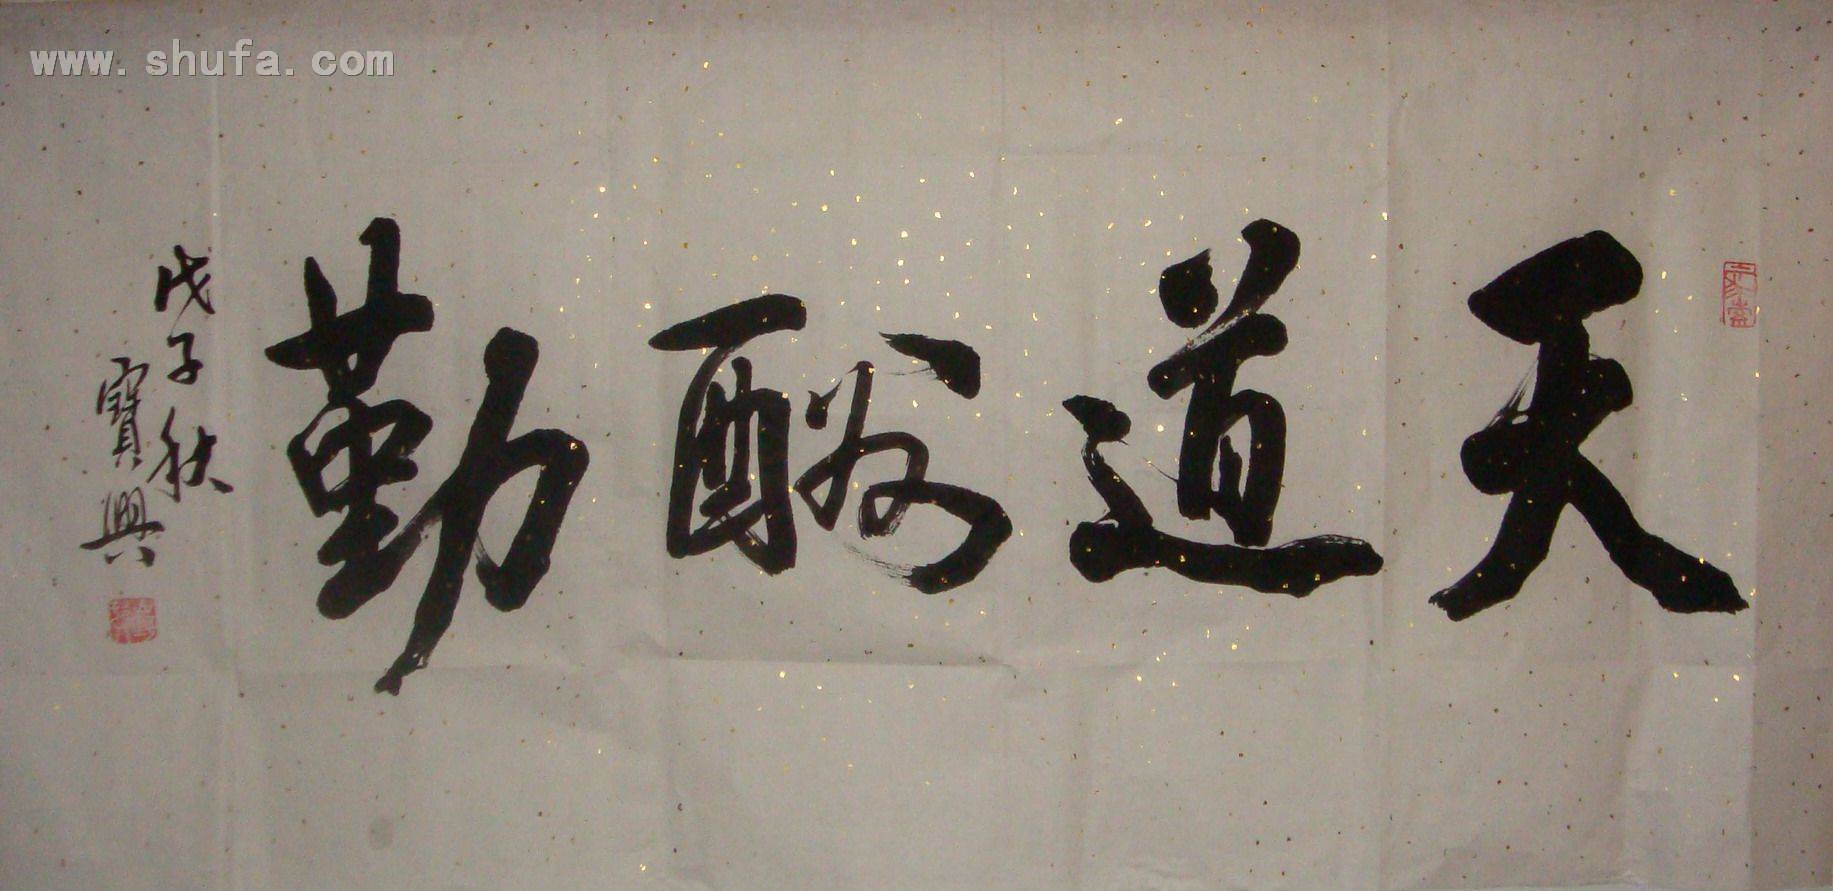 www.shufa.com
天道酬勤
戊子秋
寶興